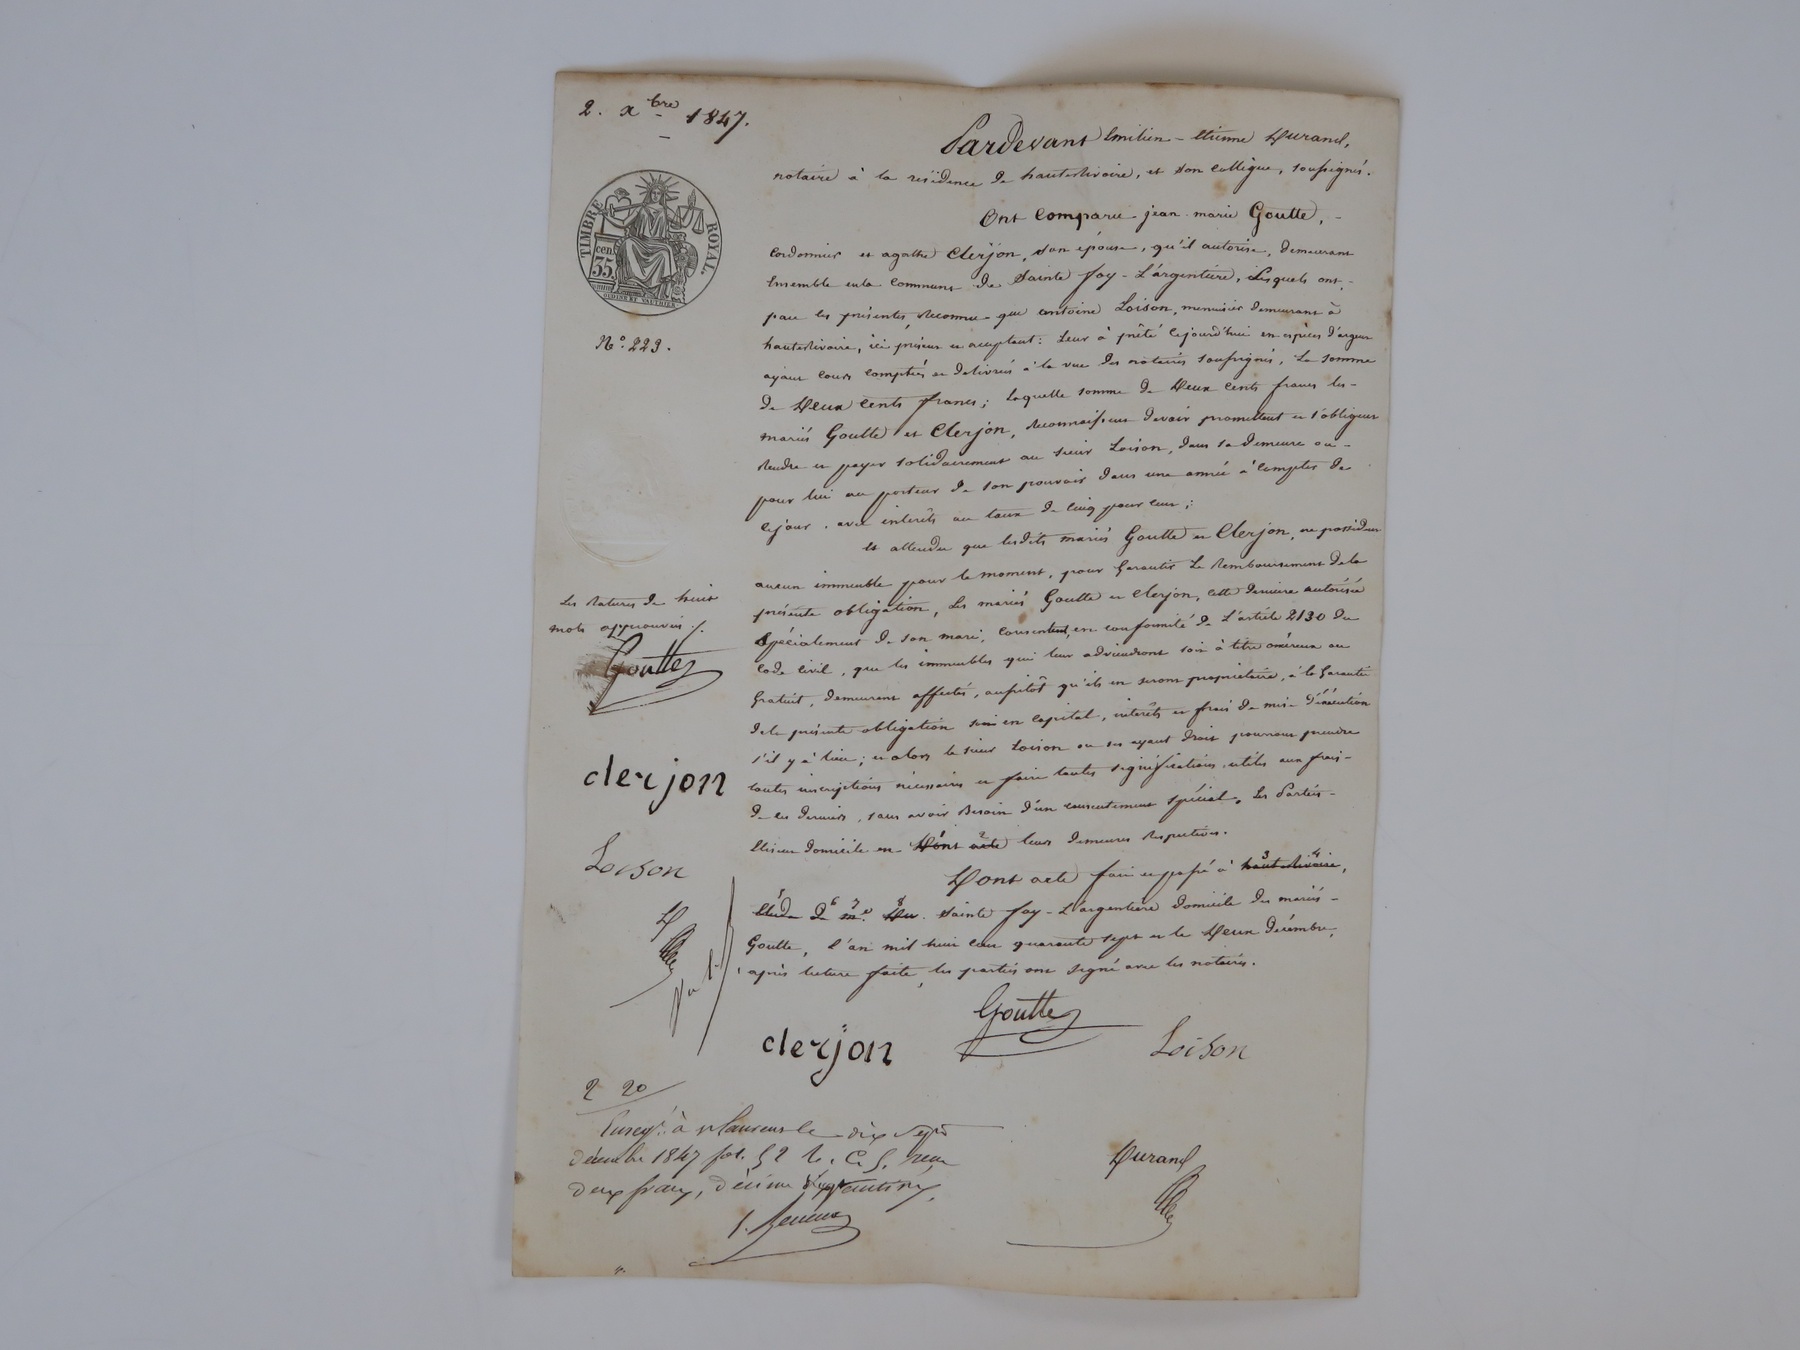 2. xbre 1847.
TIMBRE ROYAL.
cen. 35.
N.º 223.
Pardevant Emilien-Etienne Durand,
notaire à la résidence de hauterivoire, et son collègue, soussignés.
Ont comparu jean-marie Goutte,
cordonnier et agathe Clerjon, son épouse, qu'il autorise, demeurant
Ensemble enla commune de Sainte Foy-L'argentière, Lesquels ont,
par les présentes, reconnu que antoine Loison, menuisier demeurant à
hauterivoire, ici présent et acceptant: Leur à prêté cejourd'hui en espèces d'argent
ayant cours comptées et delivrées à la vue des notaires soussignés, La somme
de Deux cents francs; Laquelle somme de Deux cents francs les-
mariés Goutte et Clerjon, reconnaissent devoir promettent et s'obligent
rendre et payer solidairement au sieur Loison, dans sa demeure ou-
pour lui au porteur de son pouvoir dans une année à compter de
cejour, avec intérêts au taux de cinq pour cent;
Et attendu que lesdits mariés Goutte et Clerjon, ne possèdent
aucun immeuble pour le moment, pour Garantir Le Remboursement dela
présente obligation, Les mariés Goutte et Clerjon, cette dernière autorisée
Spécialement de son mari, consentent, en conformité de L'article 2130 du
Code civil, que les immeubles qui leur adviendront soit à titre onéreux ou
Gratuit, demeurent affectés, aussitôt qu'ils en seront propriétaire, à la Garantie
dela présente obligation soit en capital, intérêts et frais de mise d'éxécution
s'il y à lieu; et alors le sieur Loison ou ses ayant droit pourront prendre
toutes inscriptions nécessaires et faire toutes significations utiles aux frais-
de ces derniers, sans avoir Besoin d'un consentement spécial. Les Parties-
Elisent domicile en Dont acte leurs demeures Respectives.
Dont acte fait et passé à hauterivoire,
Etude de me. Du. Sainte Foy-L'argentière domicile des mariés-
Goutte, l'an mil huit cent quarante sept et le Deux décembre,
après lecture faite, les parties ont signé avec les notaires.
Les Ratures de huit
mots approuvées ./.
Goutte
clerjon
Loison
D
Goutte
clerjon
Loison
2 20
Enregt. à St Laurent le dix sept
décembre 1847 fol. 52 reçu
deux francs, décime vingt centimes.
Durand